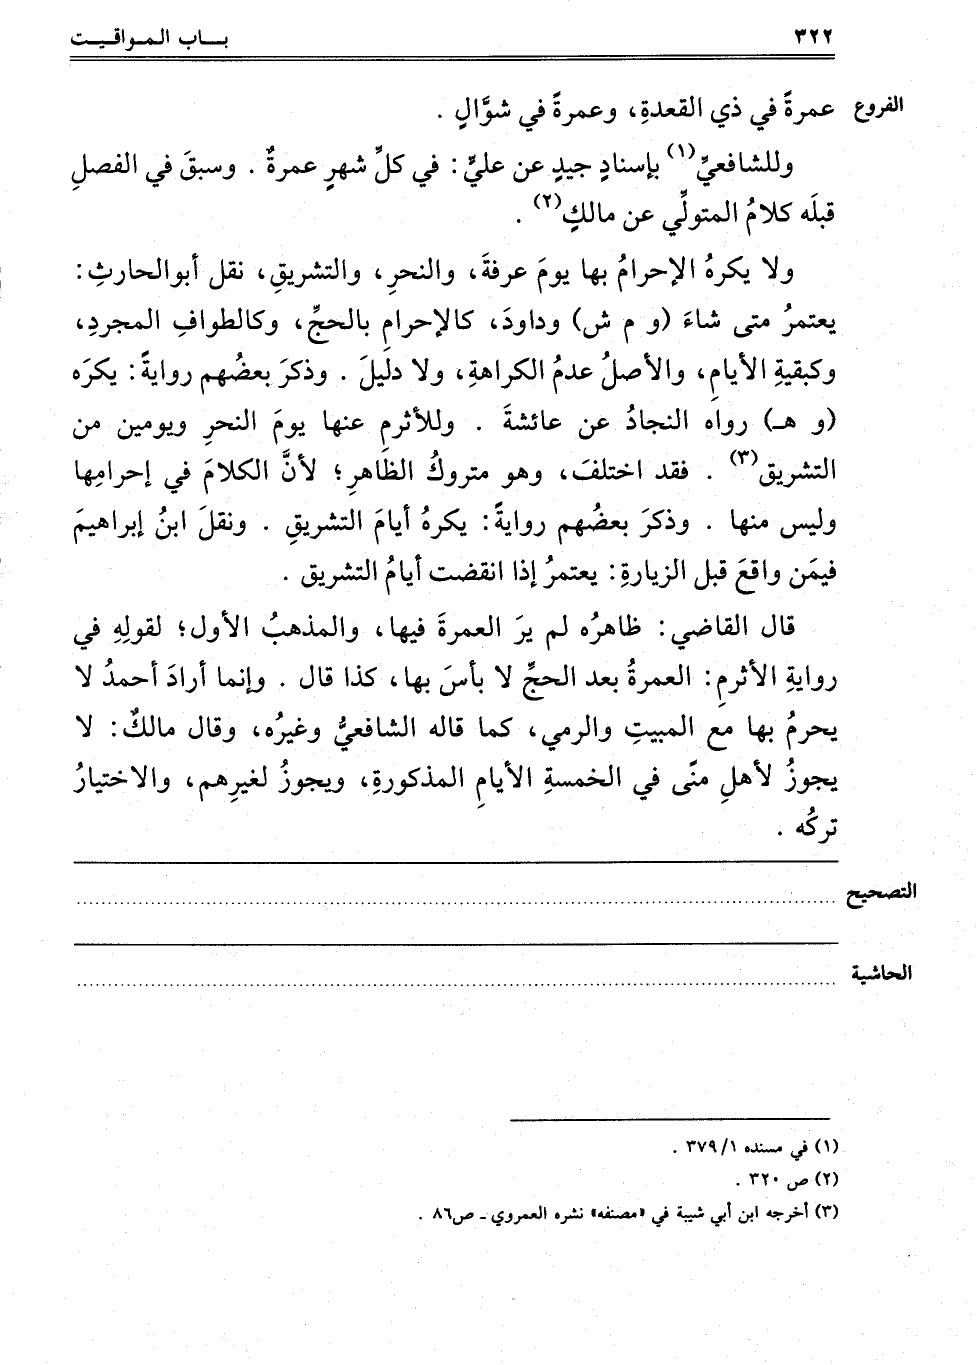 ٣٢٢ بـــاب الـمـواقـيـت
الفروع عمرةً في ذي القعدةِ، وعمرةً في شوَّالٍ .
وللشافعيِّ(١) بإسنادٍ جيدٍ عن عليٍّ: في كلِّ شهرٍ عمرةٌ . وسبقَ في الفصلِ
قبلَه كلامُ المتولِّي عن مالكٍ(٢) .
ولا يكرهُ الإحرامُ بها يومَ عرفةَ، والنحرِ، والتشريقِ، نقل أبوالحارثِ:
يعتمرُ متى شاءَ (و م ش) وداودَ، كالإحرامِ بالحجِّ، وكالطوافِ المجردِ،
وكبقيةِ الأيامِ، والأصلُ عدمُ الكراهةِ، ولا دليلَ . وذكرَ بعضُهم روايةً: يكرَه
(و هـ) رواه النجادُ عن عائشةَ . وللأثرمِ عنها يومَ النحرِ ويومين من
التشريق(٣) . فقد اختلفَ، وهو متروكُ الظاهرِ؛ لأنَّ الكلامَ في إحرامِها
وليس منها . وذكرَ بعضُهم روايةً: يكرهُ أيامَ التشريقِ . ونقلَ ابنُ إبراهيمَ
فيمَن واقعَ قبل الزيارةِ: يعتمرُ إذا انقضت أيامُ التشريق .
قال القاضي: ظاهرُه لم يرَ العمرةَ فيها، والمذهبُ الأول؛ لقولِهِ في
روايةِ الأثرمِ: العمرةُ بعد الحجِّ لا بأسَ بها، كذا قال . وإنما أرادَ أحمدُ لا
يحرمُ بها مع المبيتِ والرمي، كما قاله الشافعيُّ وغيرُه، وقال مالكٌ: لا
يجوزُ لأهلِ منًى في الخمسةِ الأيامِ المذكورةِ، ويجوزُ لغيرِهم، والاختيارُ
تركُه .
التصحيح
الحاشية
(١) في مسنده ٣٧٩/١ .
(٢) ص ٣٢٠ .
(٣) أخرجه ابن أبي شيبة في «مصنفه» نشره العمروي ـ ص٨٦ .